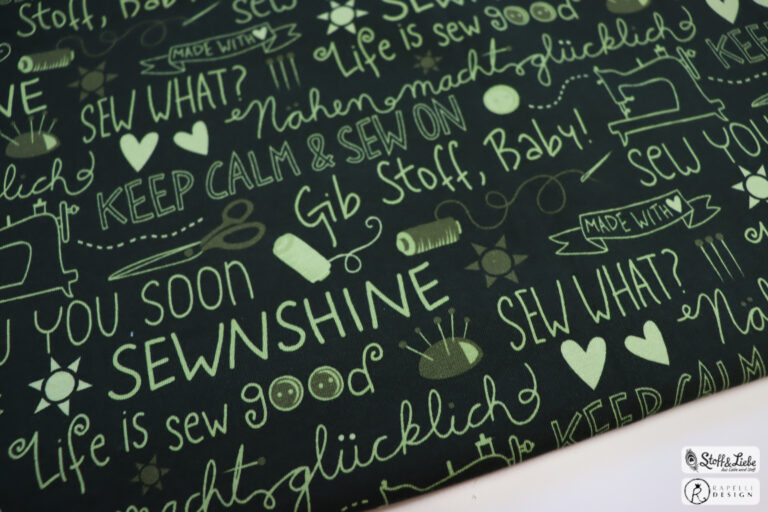 Stoff, Baby!
Life is sew good
MADE WITH
KEEP
SEW WHAT?
Nähen macht glücklich
KEEP CALM & SEW ON
Gib Stoff, Baby!
SEW YOU
MADE WITH
YOU SOON
SEWNSHINE
SEW WHAT?
Life is sew good
macht glücklich
KEEP CALM
Stoff&Liebe
aus Liebe zum Stoff
R.
RAPELLI
DESIGN